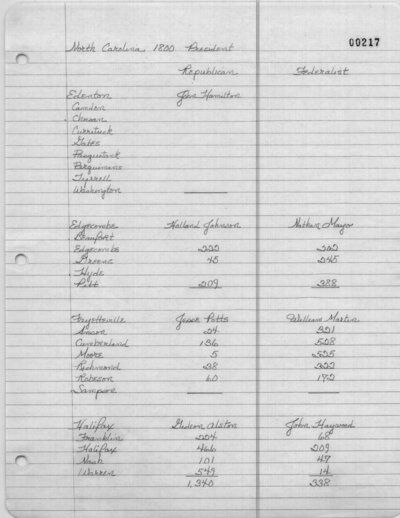 00217
North Carolina 1800 President
Republican Federalist
Edenton John Hamilton
Camden
Chowan
Currituck
Gates
Pasquotank
Perquimans
Tyrrell
Washington
Edgecombe Holland Johnson Nathan Mayo
Beaufort
Edgecombe 222 222
Greene 45 245
Hyde
Pitt 209 388
Fayetteville Jesse Potts William Martin
Anson 24 321
Cumberland 136 508
Moore 5 525
Richmond 38 322
Robeson 60 172
Sampson
Halifax Gideon Alston John Haywood
Franklin 224 68
Halifax 466 209
Nash 101 47
Warren 549 14
1,340 338